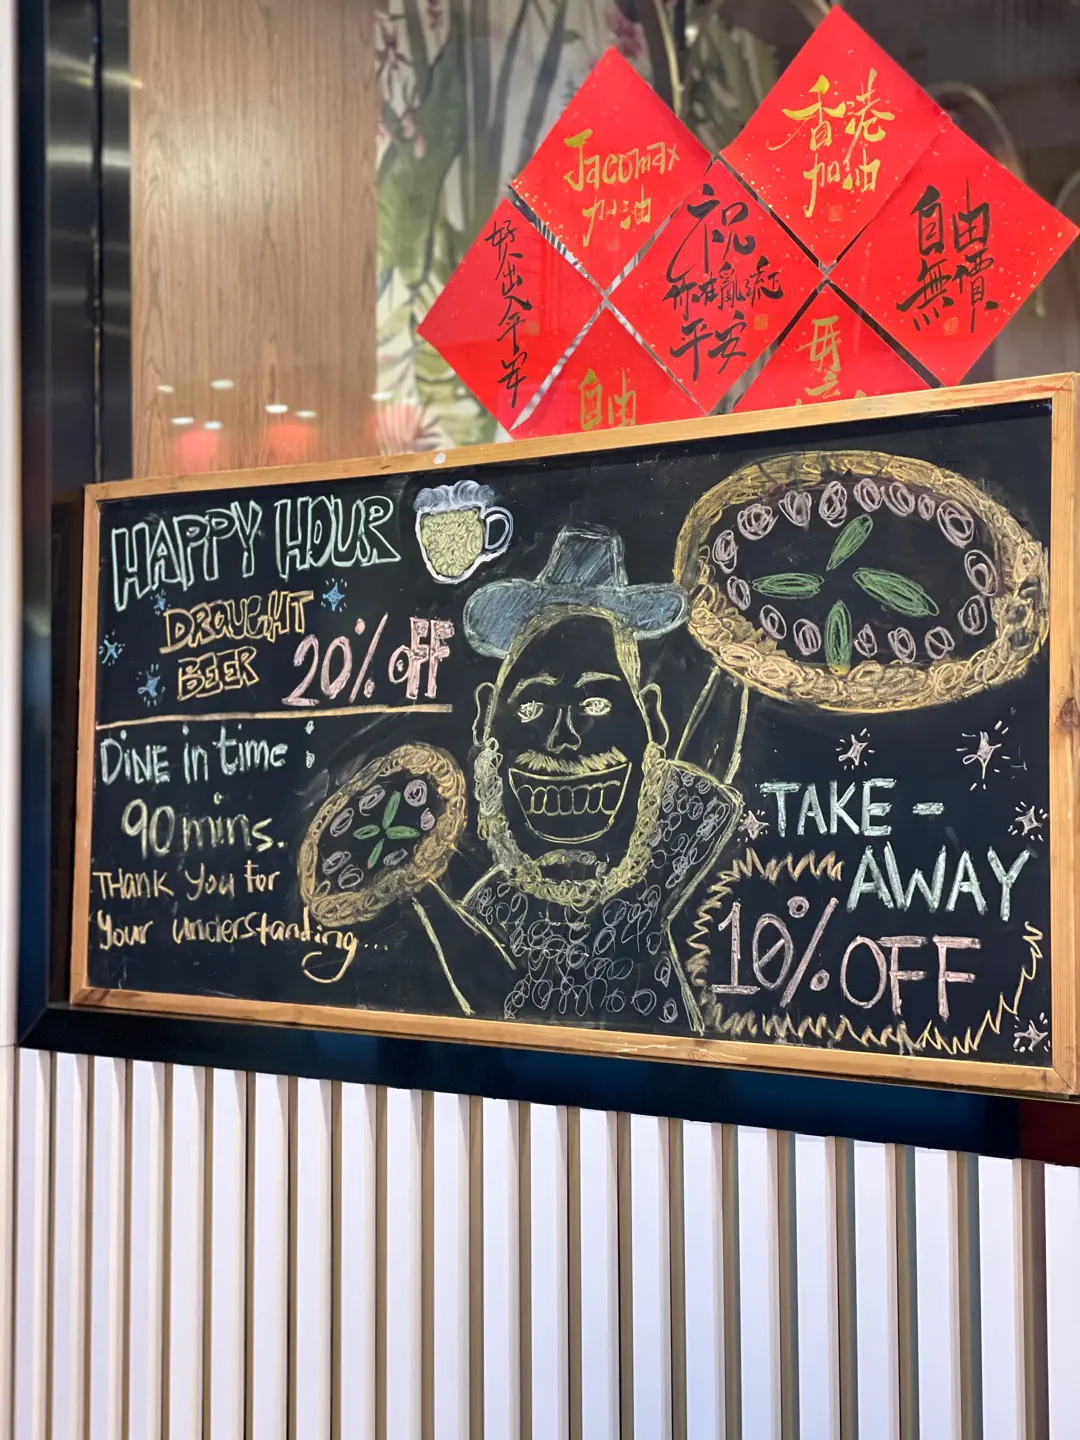 Jacomax
加油
香港
加油
好人出入平安
祝
你在亂流
平安
自由
無價
自由
HAPPY HOUR
DRAUGHT
BEER
20% OFF
DINE in time :
90 mins.
THank You For
Your understanding...
TAKE -
AWAY
10% OFF